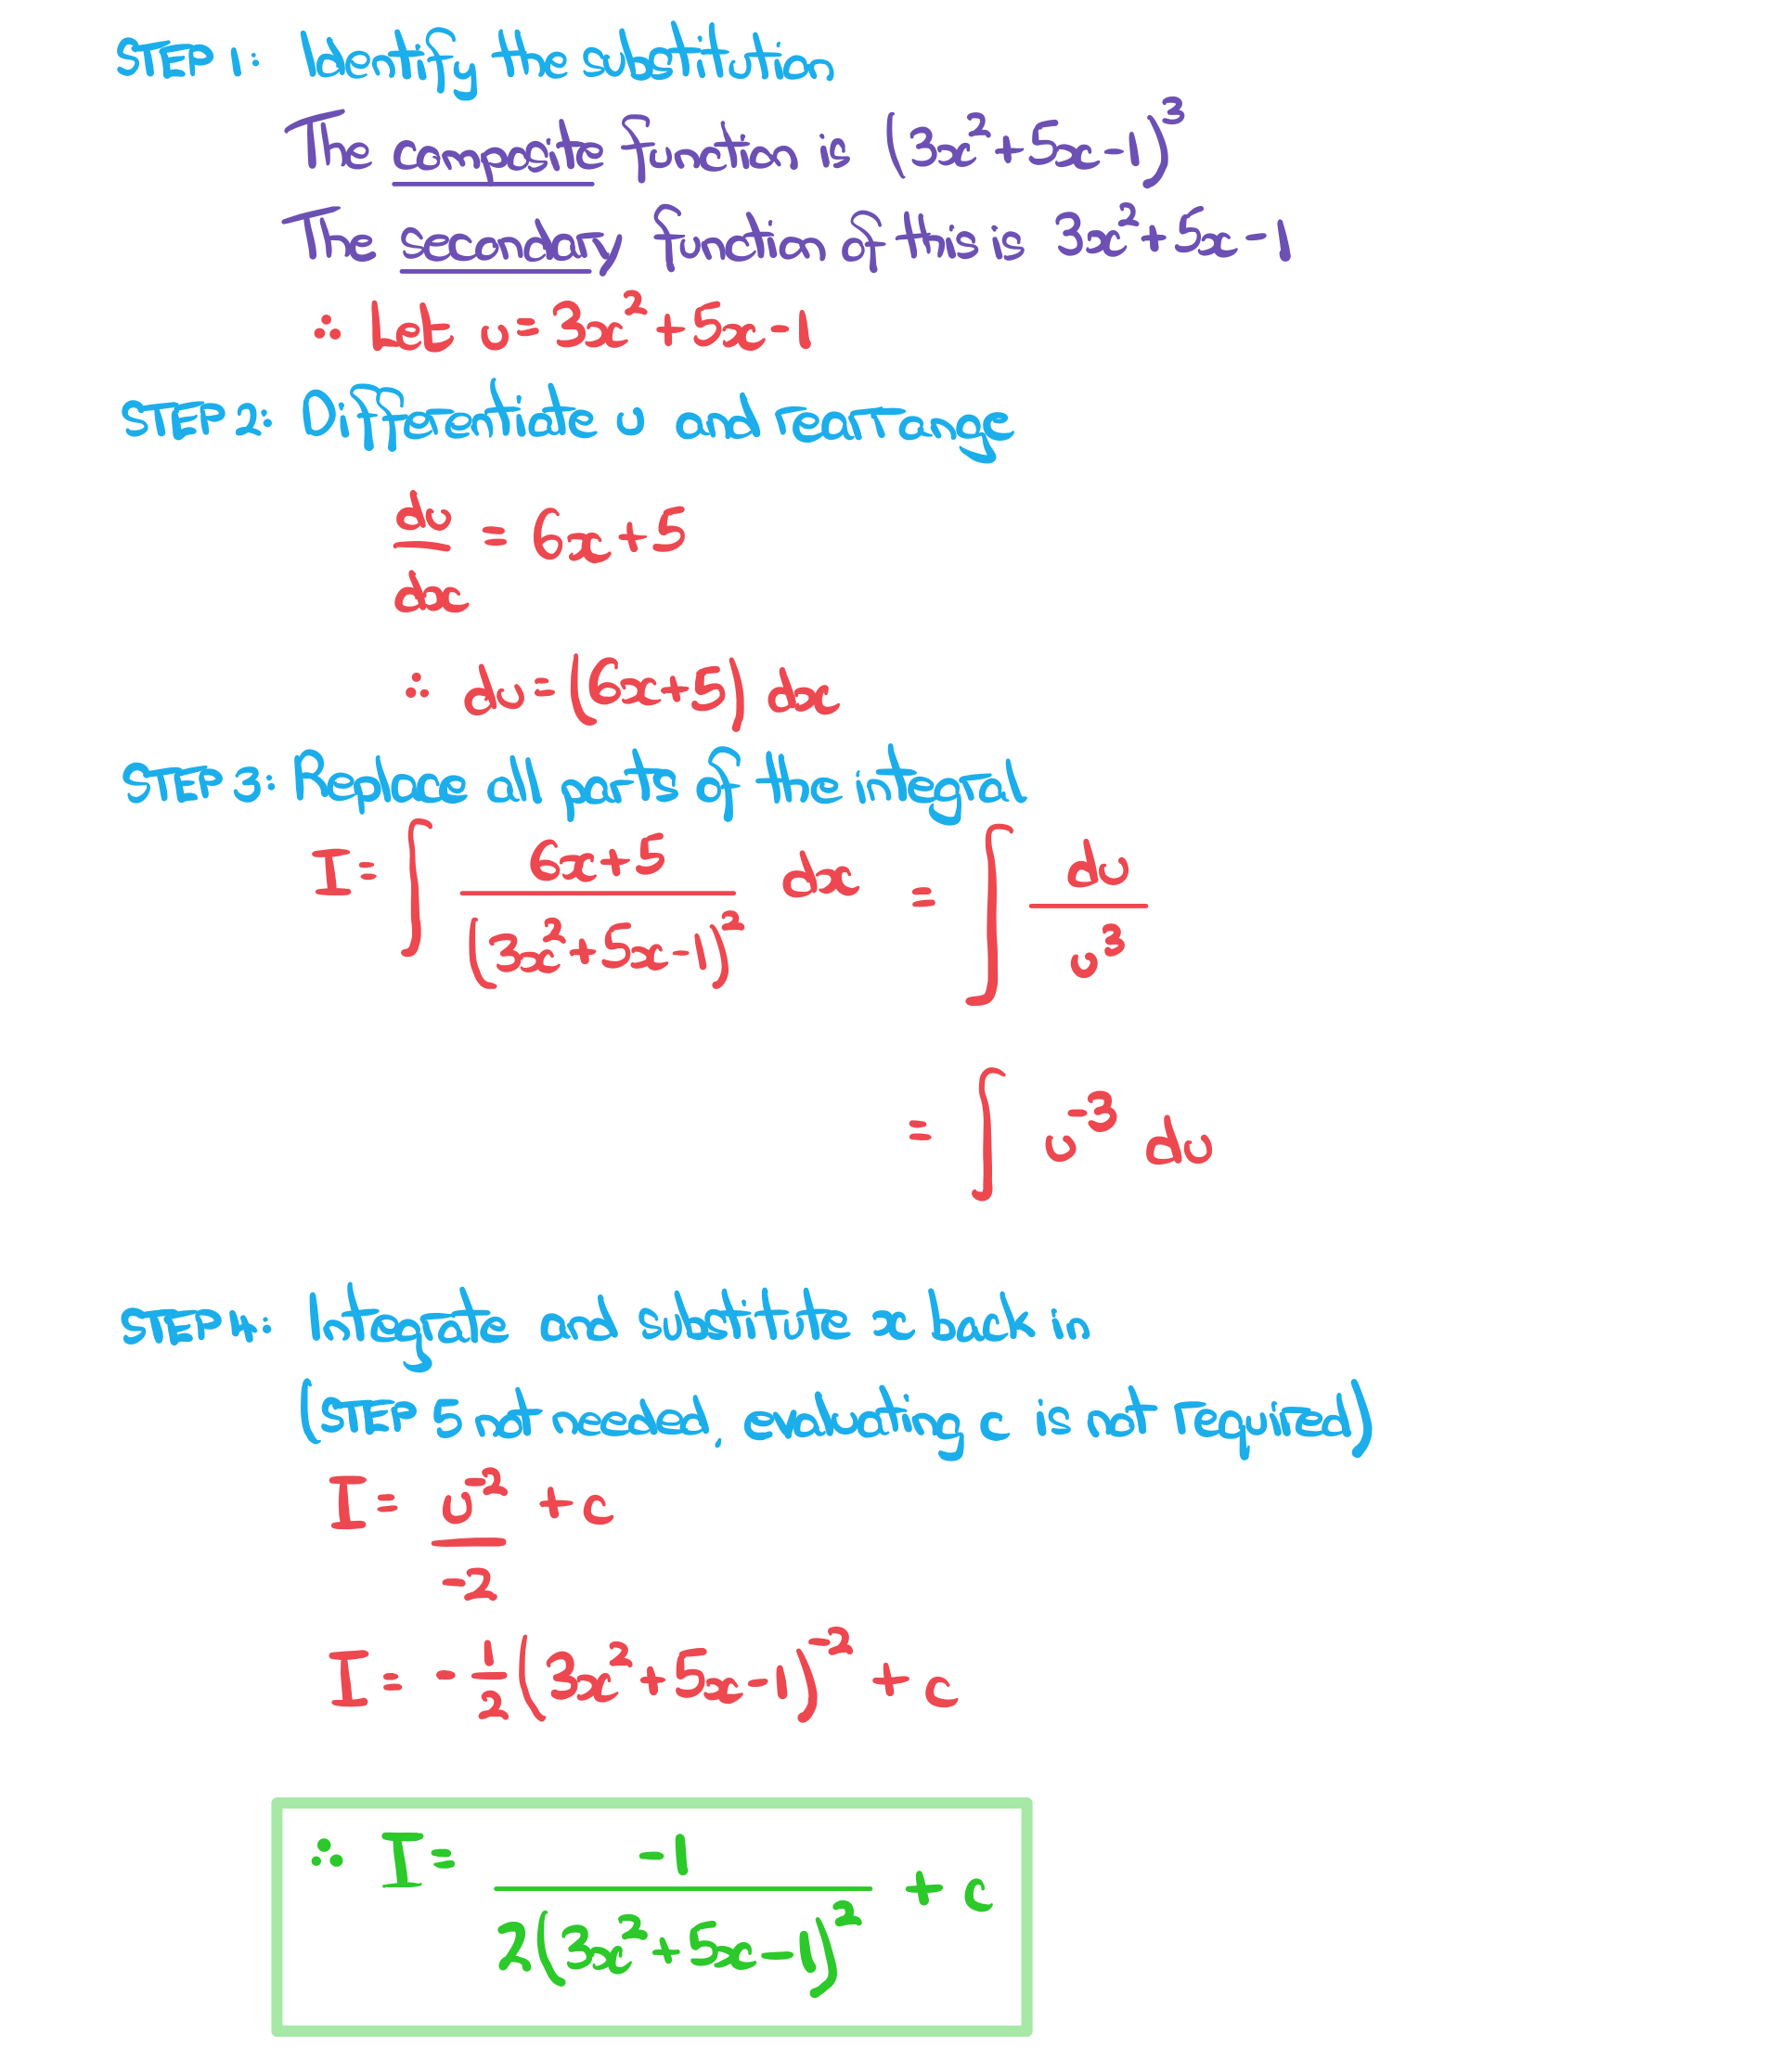 STEP 1: Identify the substitution
The composite function is (3x²+5x-1)³
The secondary function of this is 3x²+5x-1
∴ Let u=3x²+5x-1
STEP 2: Differentiate u and rearrange
du/dx = 6x+5
∴ du=(6x+5) dx
STEP 3: Replace all parts of the integral
I= ∫ (6x+5)/(3x²+5x-1)² dx = ∫ du/u³
= ∫ u⁻³ du
STEP 4: Integrate and substitute x back in
(STEP 5 not needed, evaluating c is not required)
I= u⁻²/-2 + c
I= -1/2(3x²+5x-1)⁻² + c
∴ I= -1/2(3x²+5x-1)² + c